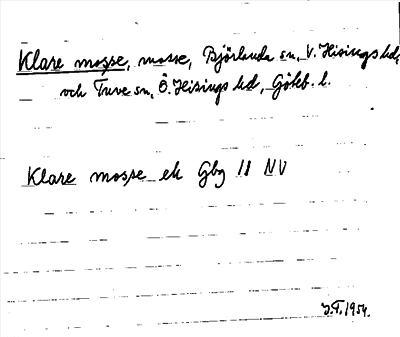 Klare mosse, mosse, Björlanda sn, V. Hisings hd,
och Tuve sn, Ö. Hisings hd, Göteb. l.
Klare mosse ek Gbg II NV
J.T. 1954.